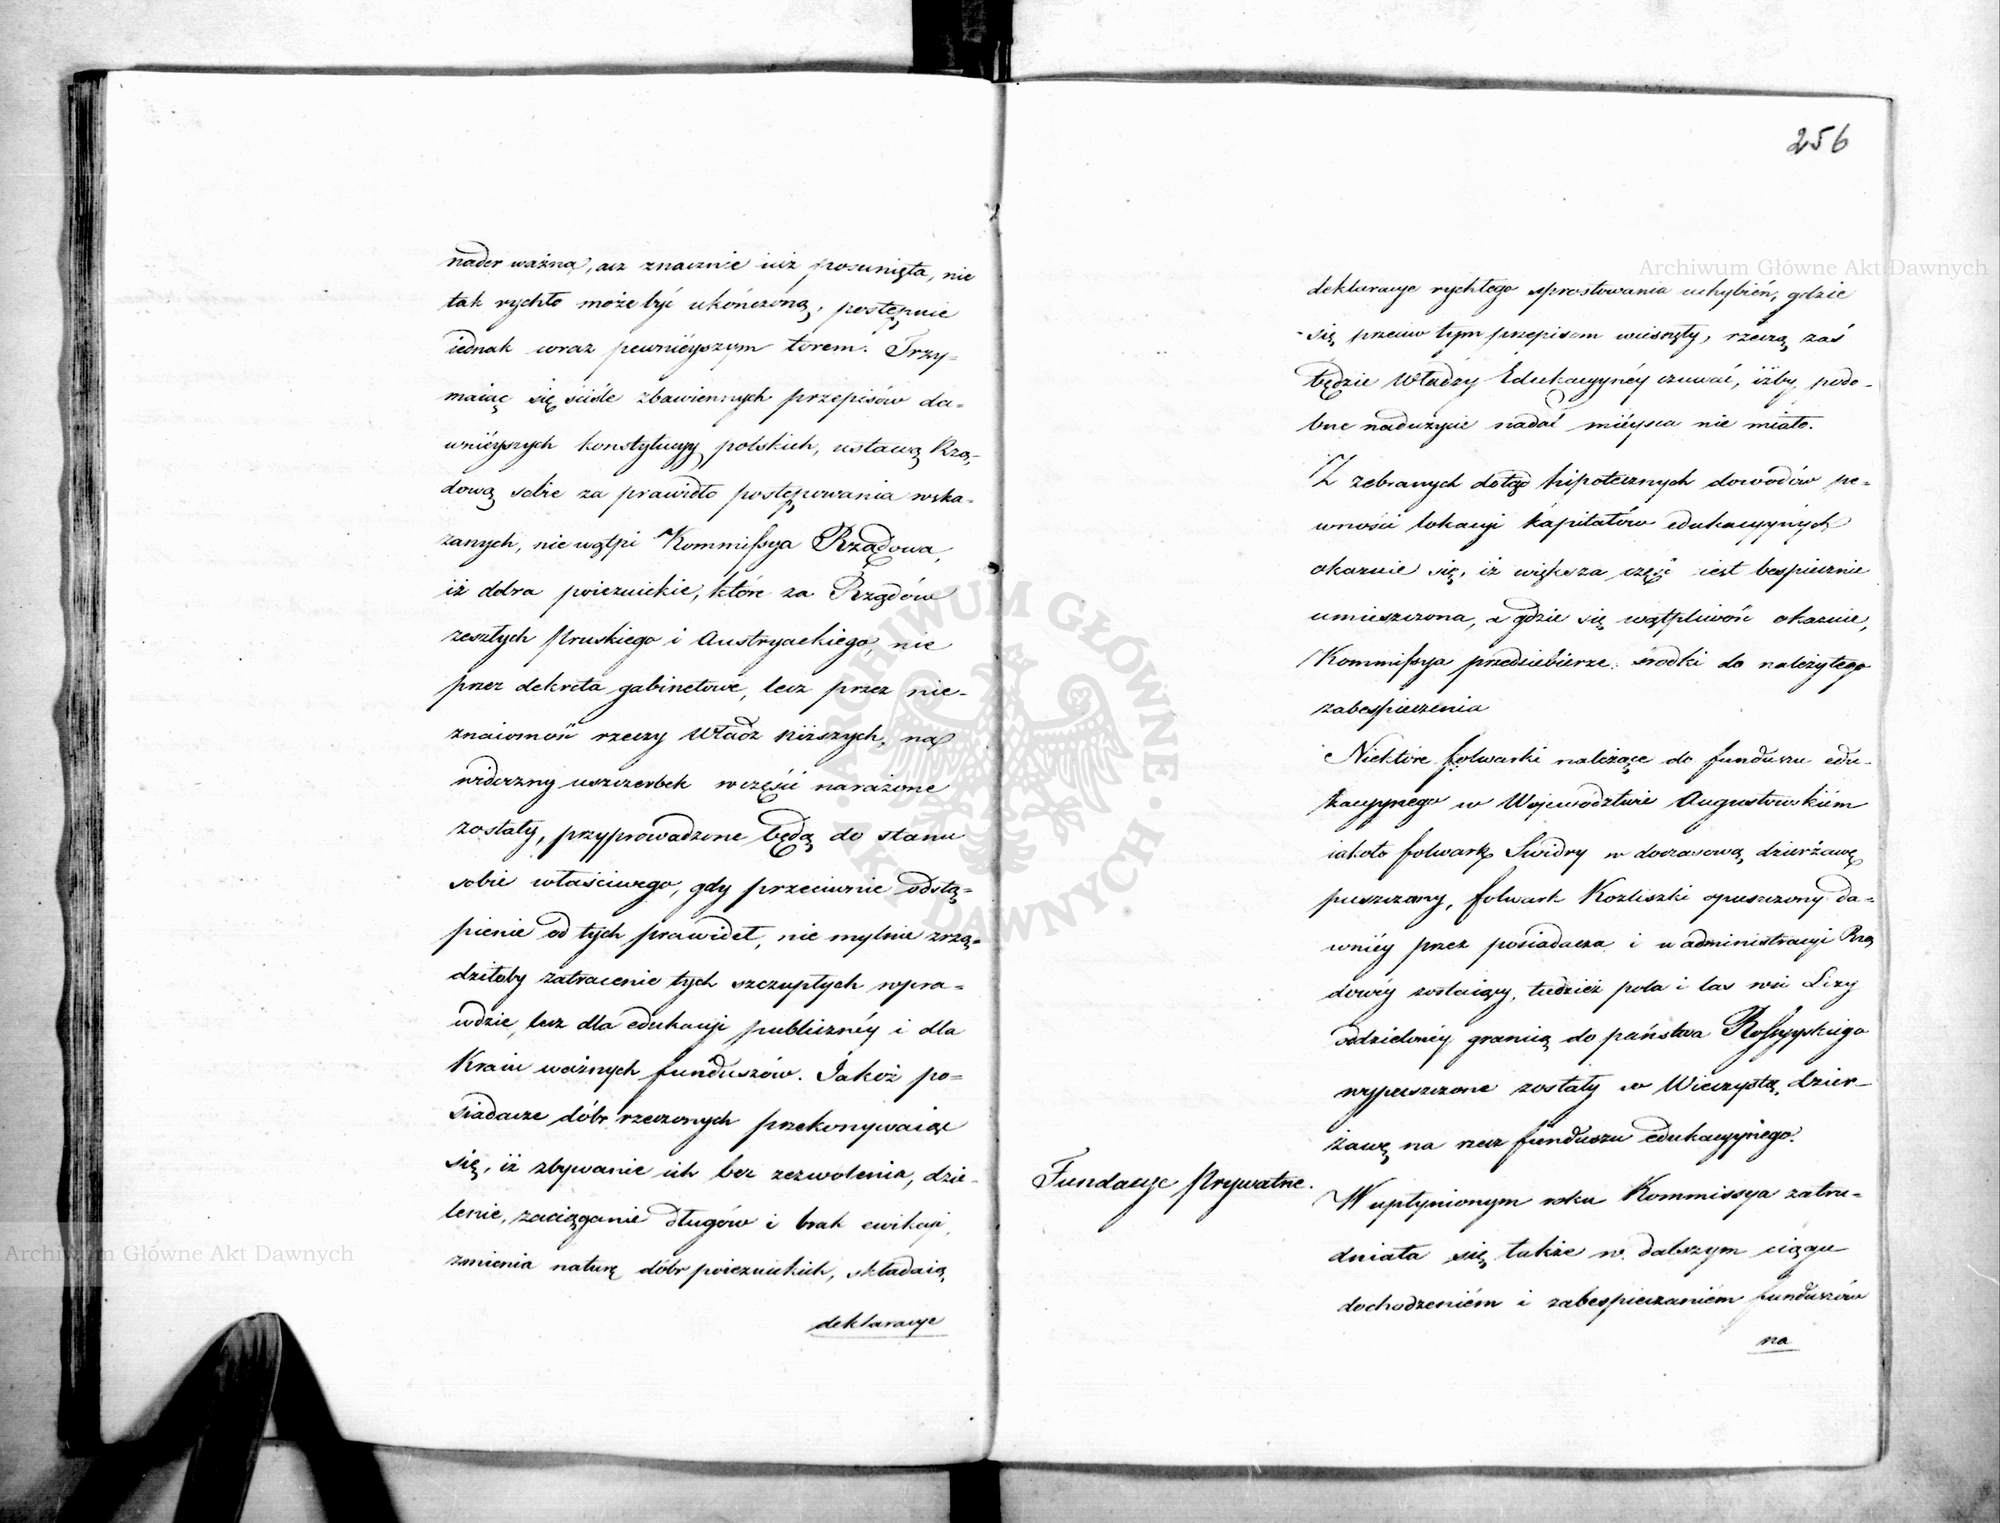 nader ważną, acz znacznie iuż posunięta, nie
tak rychło może być ukończoną, postępuie
iednak coraz pewnieyszym torem. Trzy-
maiąc się ściśle zbawiennych przepisów da-
wnieyszych konstytucyy polskich, ustawą Rzą-
dową sobie za prawidło postępowania wska-
zanych, nie wątpi Kommissya Rządowa,
iż dobra poiezuickie, które za Rządów
zeszłych Pruskiego i Austryackiego, nie
przez dekreta gabinetowe, lecz przez nie-
znaiomość rzeczy Władz niższych, na
widoczny uszczerbek w części narażone
zostały, przyprowadzone będą do stanu
sobie właściwego, gdy przeciwnie odstą-
pienie od tych prawideł, nie mylnie zrzą-
dziłoby zatracenie tych szczupłych wpra-
wdzie, lecz dla edukacyi publiczney i dla
Kraiu ważnych funduszów. Jakoż po-
siadacze dóbr rzeczonych przekonywaiąc
się, iż zbywanie ich bez zezwolenia, dzie-
lenie, zaciąganie długów i brak ewikcyi,
zmienia naturę dóbr poiezuickich, składaią
deklaracye
256
deklaracye rychłego sprostowania uchybień, gdzie
się przeciw tym przepisom wcisnęły, rzeczą zaś
będzie Władzy Edukacyyney czuwać, iżby podo-
bne nadużycie nadal mieysca nie miało.
Z zebranych dotąd hipotecznych dowodów pe-
wności lokacyi kapitałów edukacyynych
okazuie się, iż większa część iest bespiecznie
umieszczona, a gdzie się wątpliwość okazuie,
Kommissya przedsiebierze środki do należytego
zabespieczenia
Niektóre folwarki należące do funduszu edu-
kacyynego w Woiewództwie Augustowskiem
iakoto folwark Swidry w doczasową dzierżawę
puszczany, folwark Kozliszki opuszczony da-
wniey przez posiadacza i w administracyi Rzą
dowey zostaiący, tudzież pola i las wsi Lizy
oddzieloney granicą do państwa Rossyyskiego
wypuszczone zostały w Wieczystą dzier-
żawę na rzecz funduszu edukacyynego.
Fundacye Prywatne.
W upłynionym roku Kommissya zatru-
dniała się także w dalszym ciągu
dochodzeniem i zabespieczaniem funduszów
na
Archiwum Główne Akt Dawnych
Archiwum Główne Akt Dawnych
ARCHIWUM GŁÓWNE · AKT DAWNYCH ·